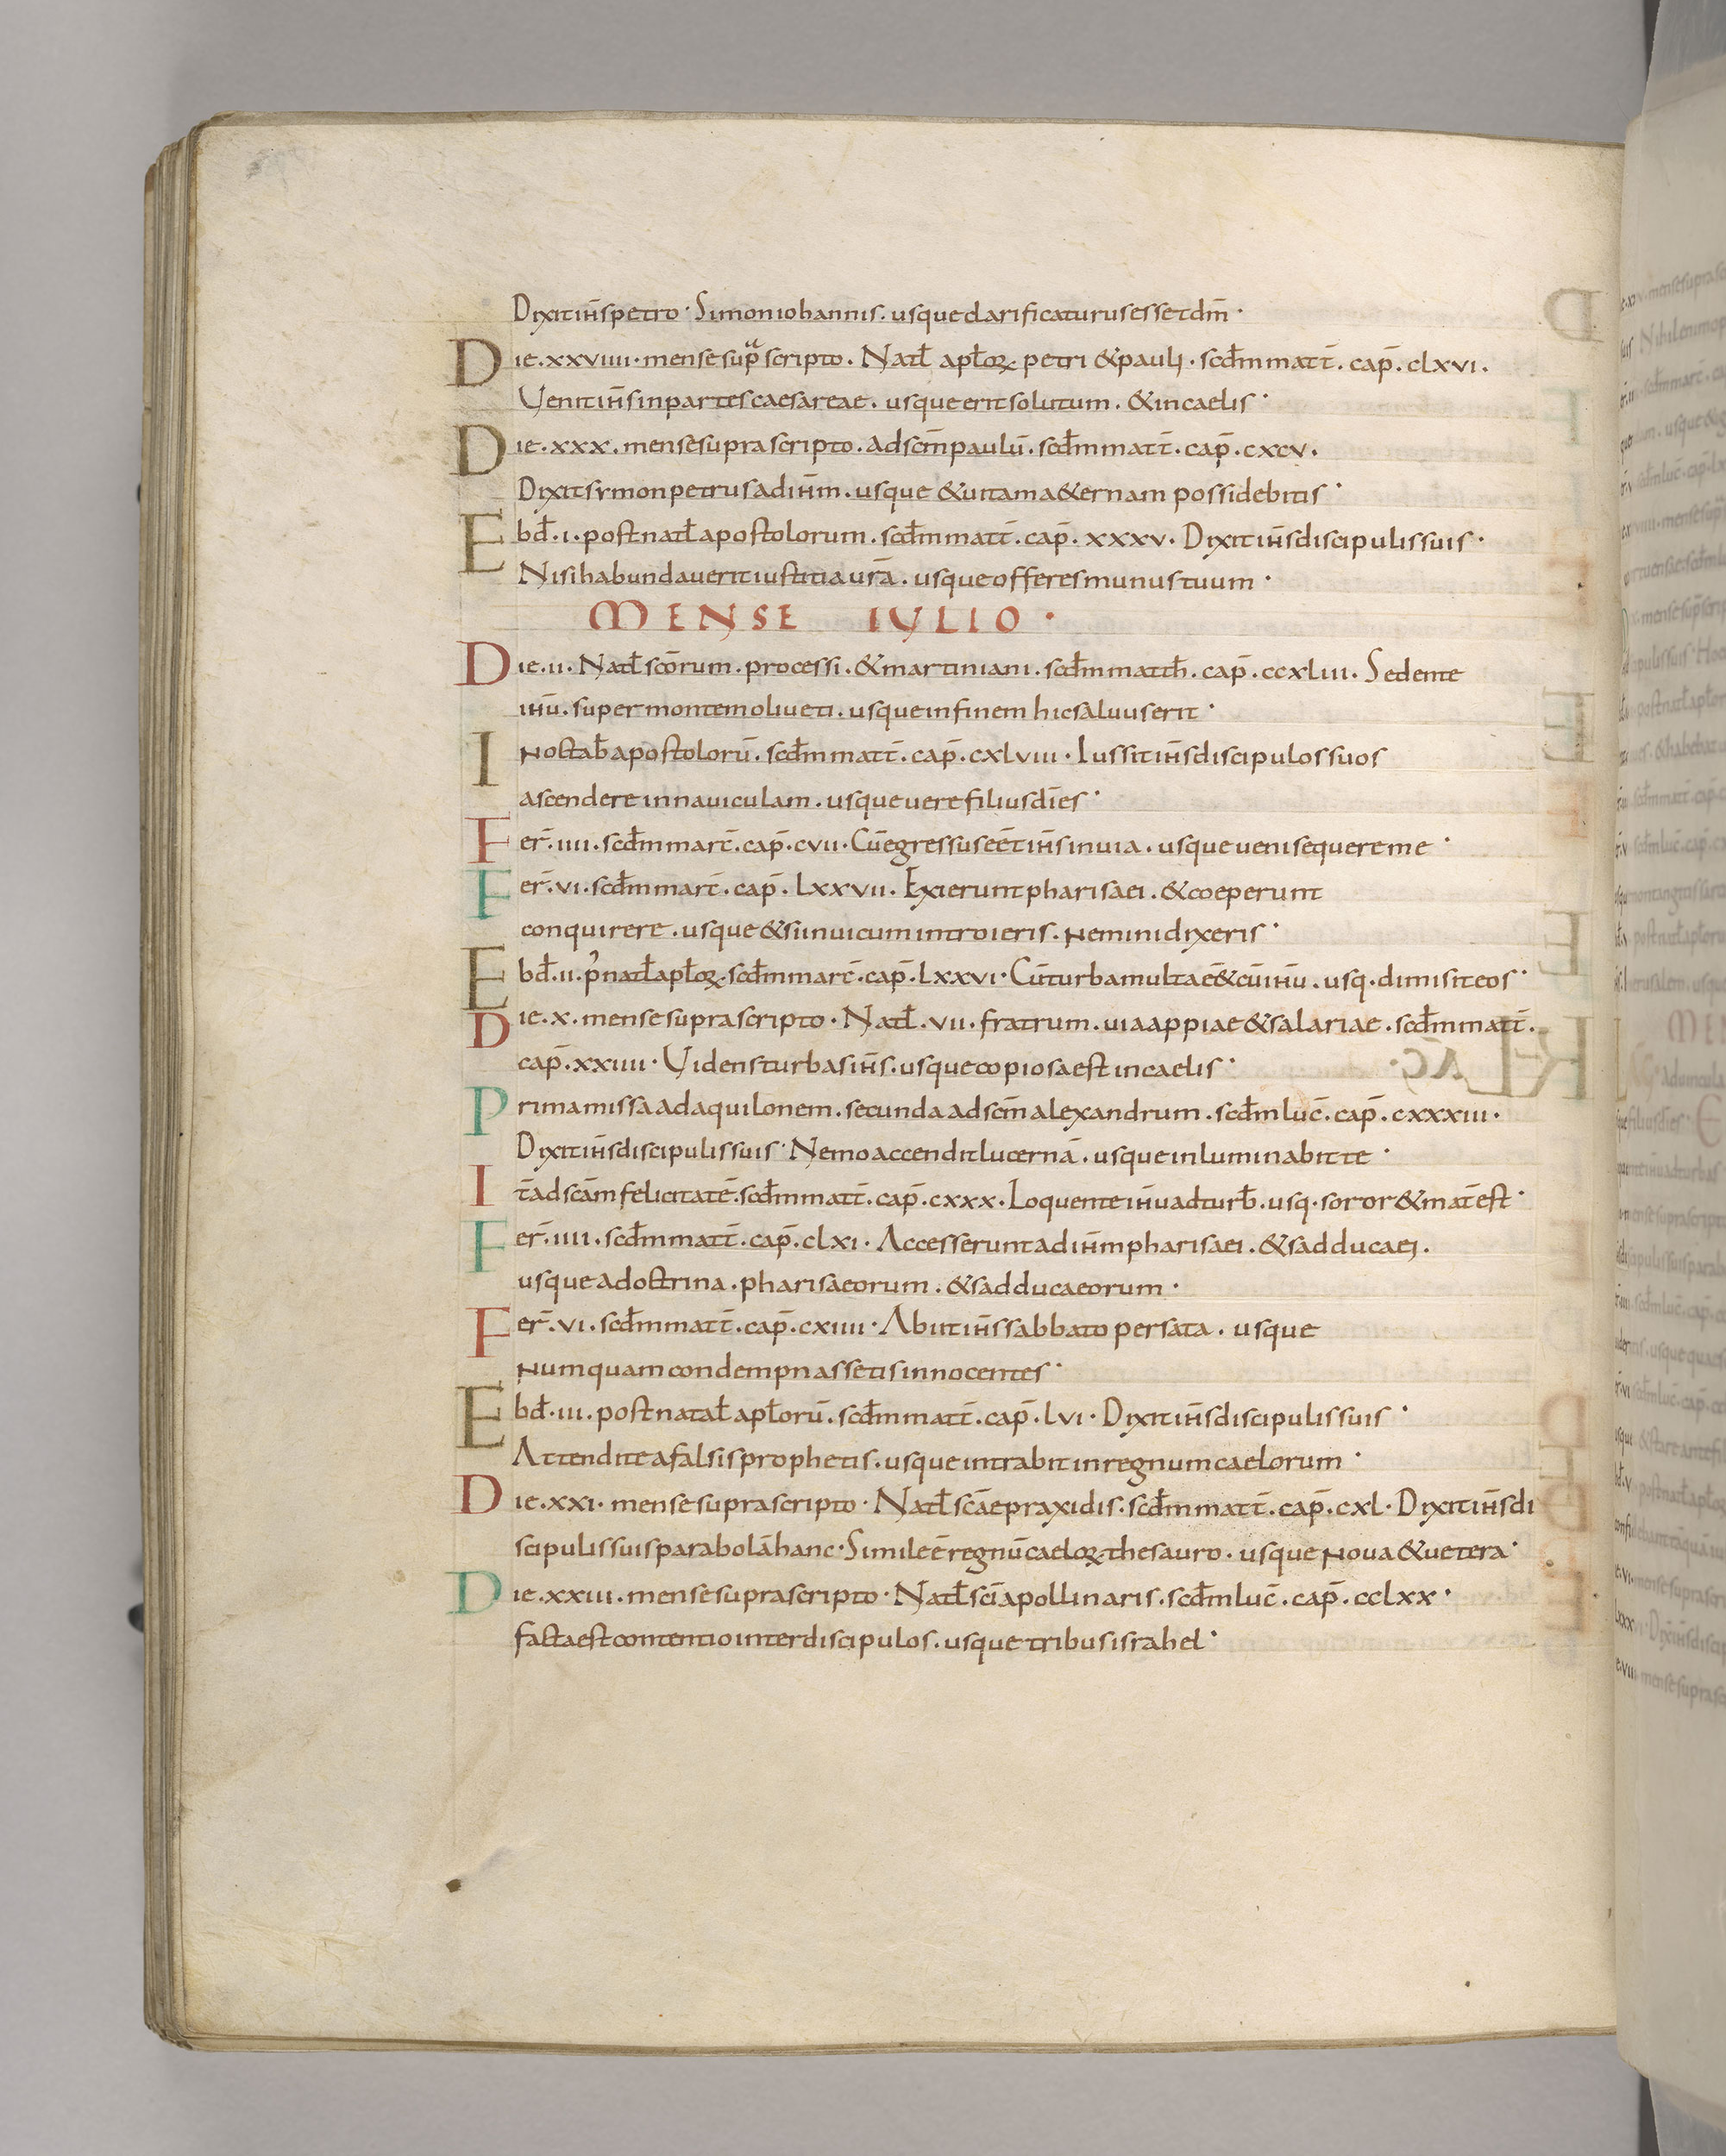 Dixit ih̄s petro · Simon iohannis . usque clarificaturus esset dm̄ ·
Die . xxviiii · mense sup̄ascripto . Natł apłoꝝ . petri & pauli . scđm matt̄ . cap̄ . clxvi .
Uenit ih̄s in partes caesareae . usque erit solutum . & in caelis ·
Die . xxx . mense suprascripto . ad scm̄ paulū . scđm matt̄ . cap̄ . cxcv .
Dixit symon petrus ad ih̄m . usque & uitam a&ernam possidebitis ·
Ebđ . i . post natł apostolorum . scđm matt̄ . cap̄ . xxxv . Dixit ih̄s discipulis suis ·
Nisi habundauerit iustitia ur̄a . usque offeres munus tuum ·
MENSE IULIO ·
Die . ii . Natł scōrum . processi . & martiniani . scđm matth̄ . cap̄ . ccxliii . Sedente
ih̄u . super montem oliueti . usque in finem hic saluus erit ·
In octab̄ apostolorū . scđm matt̄ . cap̄ . cxlviii · Iussit ih̄s discipulos suos
ascendere in nauiculam . usque uere filius dī es ·
Fer̄ . iiii . scđm marc̄ . cap̄ . cvii · Cū egressus eēt ih̄s in uia . usque ueni sequere me ·
Fer̄ . vi . scđm marc̄ . cap̄ . lxxvii . Exierunt pharisaei . & coeperunt
conquirere . usque & si in uicum introieris . nemini dixeris ·
Ebđ . ii . p' natł apłoꝝ . scđm marc̄ . cap̄ . lxxvi · Cū turba multa eē& cū ih̄u . usq . dimisit eos ·
Die . x . mense suprascripto · Natł . vii . fratrum . uia appiae & salariae . scđm matt̄ .
cap̄ . xxiiii · Uidens turbas ih̄s . usque copiosa est in caelis ·
Prima missa ad aquilonem . secunda ad scm̄ alexandrum . scđm luc̄ . cap̄ . cxxxiii ·
Dixit ih̄s discipulis suis · Nemo accendit lucernā . usque inluminabit te ·
It̄ ad scām felicitatē . scđm matt̄ . cap̄ . cxxx . Loquente ih̄u ad turƀ . usq . soror & mat̄ est ·
Fer̄ . iiii . scđm matt̄ . cap̄ . clxi . Accesserunt ad ih̄m pharisaei . & sadducaei .
usque a doctrina . pharisaeorum . & sadducaeorum ·
Fer̄ . vi . scđm matt̄ . cap̄ . cxiiii · Abiit ih̄s sabbato per sata . usque
numquam condempnassetis innocentes ·
Ebđ . iii . post natał apłorū . scđm matt̄ . cap̄ . lvi · Dixit ih̄s discipulis suis ·
Attendite a falsis prophetis . usque intrabit in regnum caelorum ·
Die . xxi . mense suprascripto · Natł scāe praxidis . scđm matt̄ . cap̄ . cxl · Dixit ih̄s di
scipulis suis parabolā hanc · Simile ē regnū caeloꝝ . thesauro . usque noua & uetera ·
Die . xxiii . mense suprascripto · Natł scī apollinaris . scđm luc̄ . cap̄ . cclxx ·
facta est contentio inter discipulos . usque tribus israhel ·